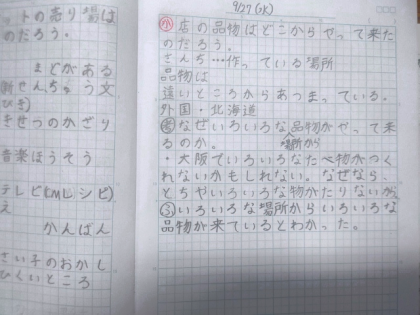 ットの売り場は
のだろう。
まどがある
新せんちゅう文
ひき)
きせつのかざり
音楽ほうそう
テレビ(CMレシピ)
え
かんばん
さい子のおかし
ひくいところ
9/27(水)
店の品物はどこからやって来た
のだろう。
さんち…作っている場所
品物は
遠いところからあつまっている。
外国・北海道
なぜいろいろな品物がやって来
場所から
るのか。
・大阪でいろいろなたべ物がつく
れないかもしれない。なぜなら、
とちやいろいろな物がたりないから
いろいろな場所からいろいろな
品物が来ているとわかった。